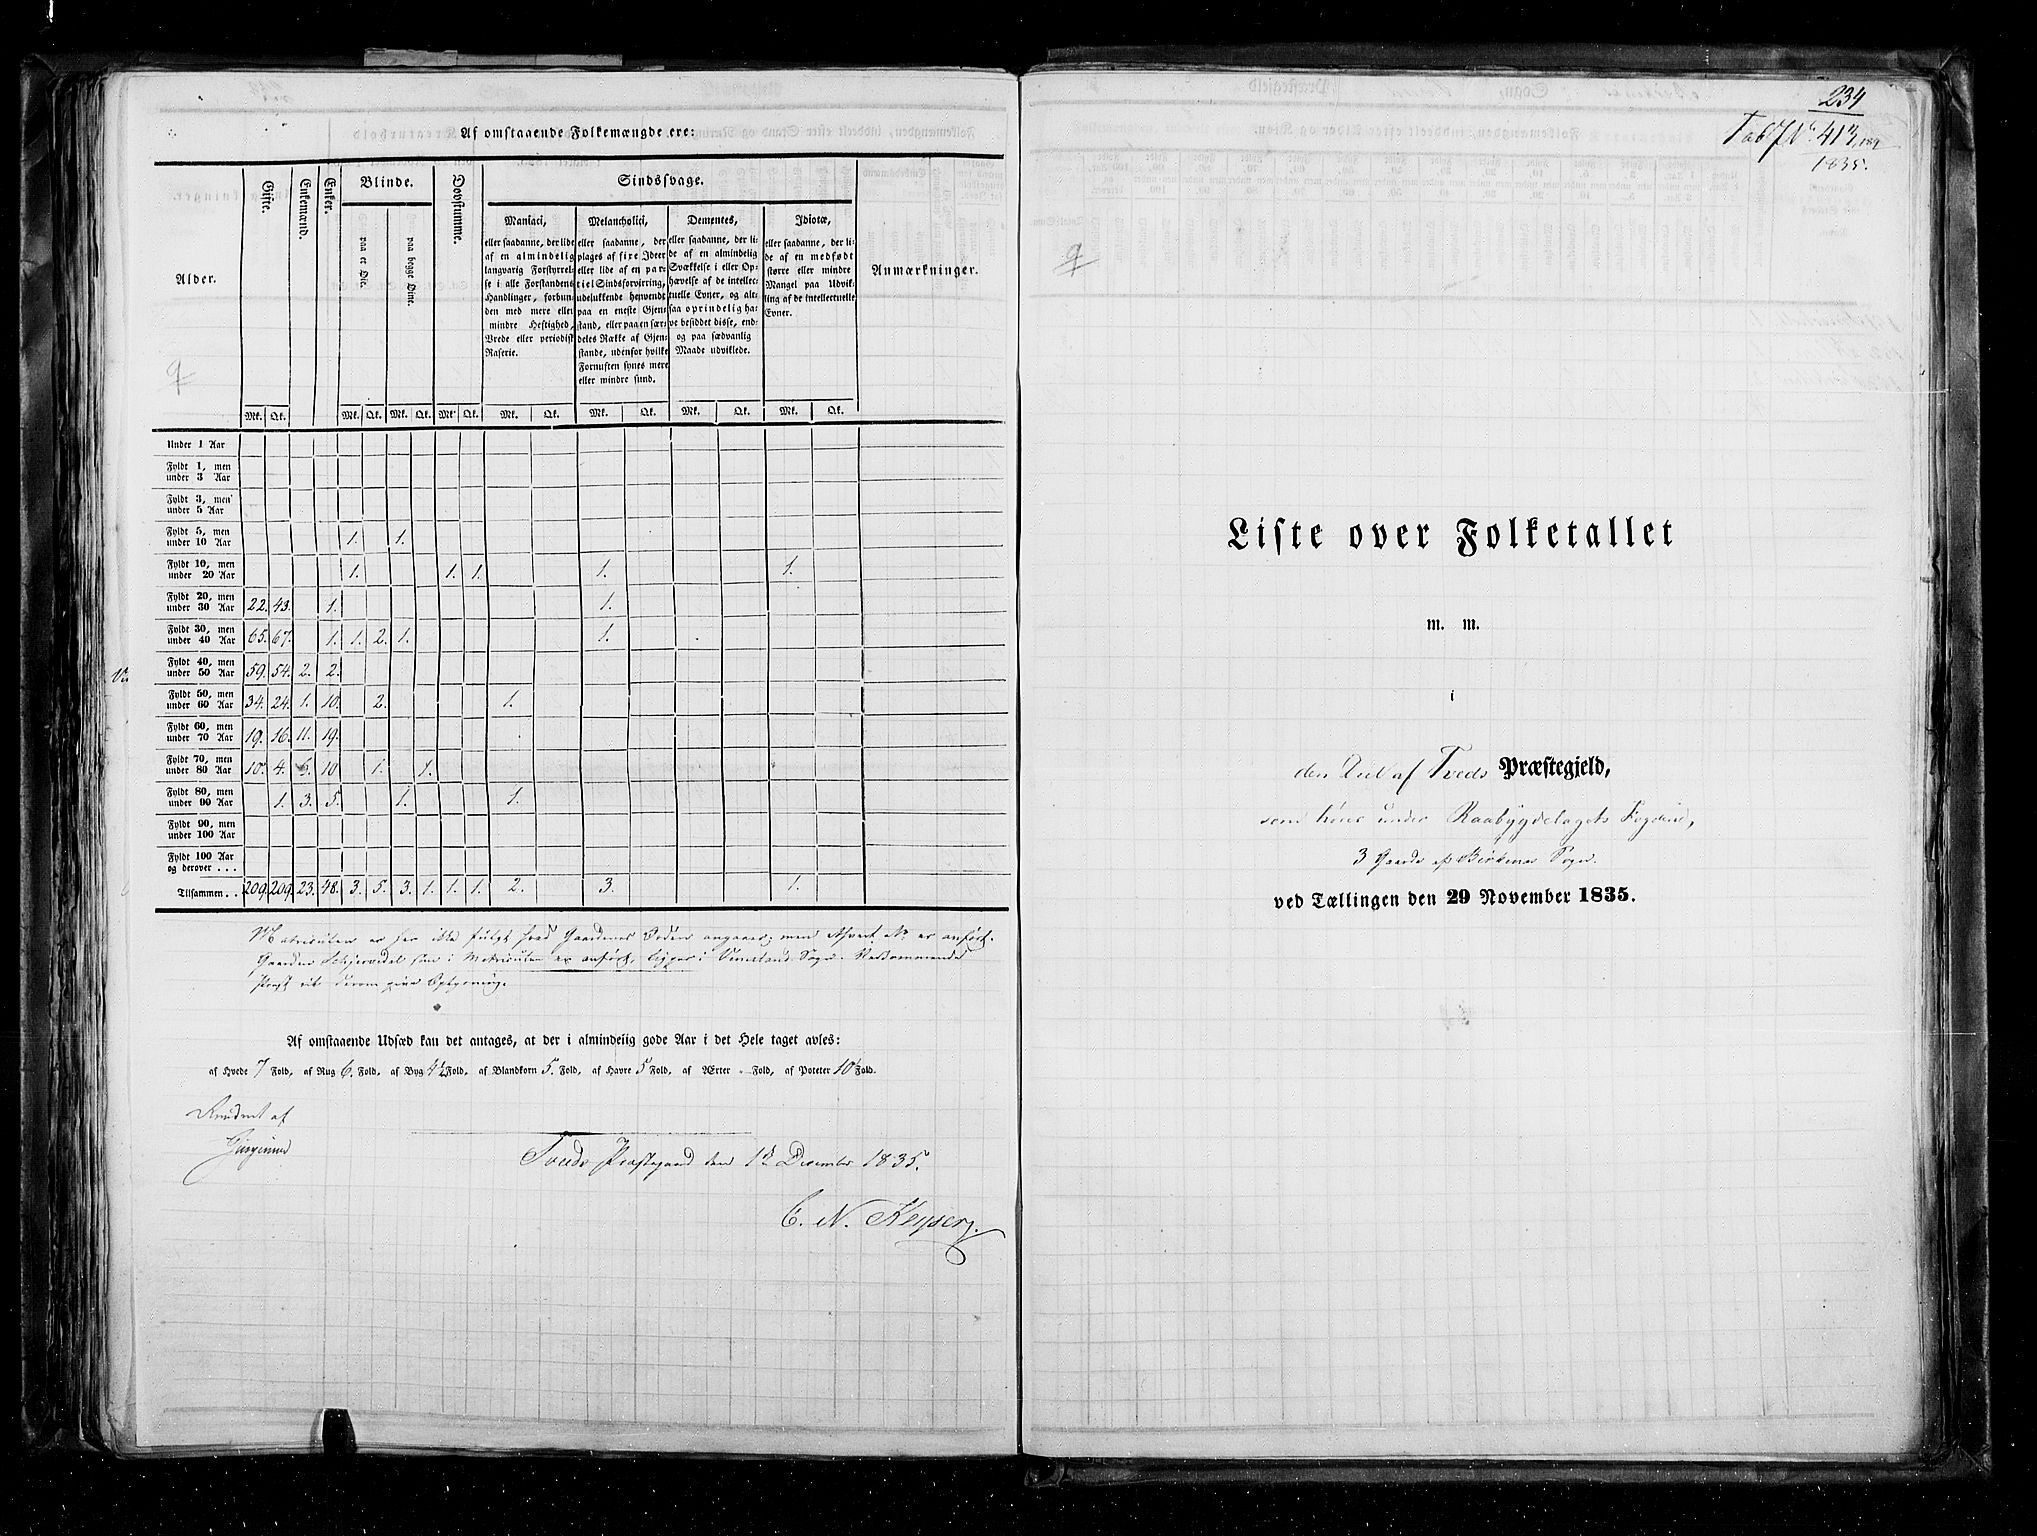 Af omstaaende Folkemængde ere:
Alder. Gifte. Enkemænd. Enker. Blinde. Døvstumme. Sindssvage. Anmærkninger.
paa et Øie. paa begge Øine.
Maniaci,
eller saadanne, der lide
af en almindelig
langvarig Forstyrrel-
se i alle Forstandens
Handlinger, forbun-
den med mere eller
mindre Heftighed,
Vrede eller periodisk
Raserie.
Melancholici,
eller saadanne, der
plages af fixe Ideer
eller lide af en par-
tiel Sindsforvirring,
udelukkende henvendt
paa en eneste Gjen-
stand, eller paa en sær-
deles Række af Gjen-
stande, udenfor hvilke
Fornuften synes mere
eller mindre sund.
Dementes,
eller saadanne, der li-
de af en almindelig
Svækkelse i eller Op-
hævelse af de intellec-
tuelle Evner, og alt-
saa oprindelig ha-
ve besiddet disse, end-
og paa sædvanlig
Maade udviklede.
Idiotæ,
eller saadanne, der li-
de af en medfødt
større eller mindre
Mangel paa Udvik-
ling af de intellectuelle
Evner.
Mk. Qk. Mk. Qk. Mk. Qk. Mk. Qk. Mk. Qk. Mk. Qk. Mk. Qk. Mk. Qk.
Under 1 Aar
Fyldt 1, men
under 3 Aar
Fyldt 3, men
under 5 Aar
Fyldt 5, men
under 10 Aar 1. 1.
Fyldt 10, men
under 20 Aar 1. 1. 1. 1. 1.
Fyldt 20, men
under 30 Aar 22. 43. 1. 1.
Fyldt 30, men
under 40 Aar 65. 67. 1. 1. 2. 1. 1.
Fyldt 40, men
under 50 Aar 59. 54. 2. 2.
Fyldt 50, men
under 60 Aar 34. 24. 1. 10. 2. 1.
Fyldt 60, men
under 70 Aar 19. 16. 11. 19.
Fyldt 70, men
under 80 Aar 10. 4. 6. 10 1. 1.
Fyldt 80, men
under 90 Aar 1. 3. 5. 1. 1.
Fyldt 90, men
under 100 Aar
Fyldt 100 Aar
og derover . . .
Tilsammen . . 209. 209. 23. 48. 3. 5. 3. 1. 1. 1. 2. 3. 1.
Matriculen er her ikke fulgt hvad Gaardenes Orden angaaer; men ethvert No er anført.
Gaarden som i Matriculen er anført, ligger i Sogn. Vedkommende
Præst vil derom give Oplysning.
Af omstaaende Udsæd kan det antages, at der i almindelig gode Aar i det Hele taget avles:
af Hvede 7 Fold, af Rug 6. Fold, af Byg 4½ Fold, af Blandkorn 5. Fold, af Havre 5 Fold, af Ærter - Fold, af Poteter 10½ Fold.
Revideret af
Tveds Præstegaard den December 1835.
C. N. Keyser.
234
Tab 7 No 413
1835.
Liste over Folketallet
m. m.
i
den Deel af Tveds Præstegjeld,
som hører under Raabygdelagets Fogderie,
3 Gaarde af Birkenæs Sogn.
ved Tællingen den 29 November 1835.